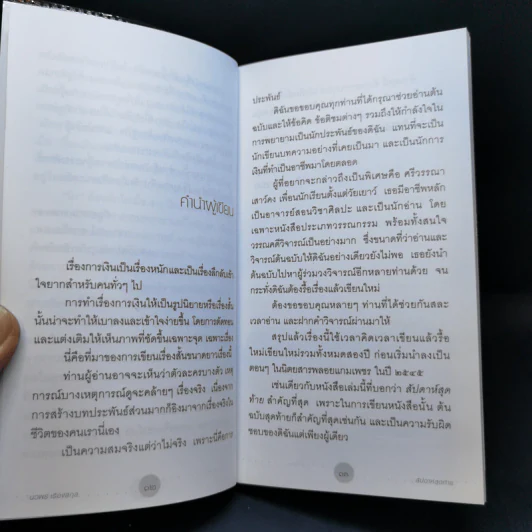 คำนำผู้เขียน
เรื่องการเงินเป็นเรื่องหนักและเป็นเรื่องลึกลับเข้า
ใจยากสำหรับคนทั่วๆ ไป
การทำเรื่องการเงินให้เป็นรูปนิยายหรือเรื่องสั้น
นั้นน่าจะทำให้เบาลงและเข้าใจง่ายขึ้น โดยการตัดทอน
และแต่งเติมให้เห็นภาพที่ชัดขึ้นเฉพาะจุด เฉพาะเรื่อง
นี่คือที่มาของการเขียนเรื่องสั้นขนาดยาวเรื่องนี้
ท่านผู้อ่านอาจจะเห็นว่าตัวละครบางตัว เหตุ
การณ์บางเหตุการณ์ดูจะคล้ายๆ เรื่องจริง เนื่องจาก
การสร้างบทประพันธ์ส่วนมากก็อิงมาจากเรื่องจริงใน
ชีวิตของคนเรานี่เอง
เป็นความสมจริงแต่ว่าไม่จริง เพราะนี่คือการ
ประพันธ์
ดิฉันขอขอบคุณทุกท่านที่ได้กรุณาช่วยอ่านต้น
ฉบับและให้ข้อคิด ข้อติชมต่างๆ รวมถึงให้กำลังใจใน
การพยายามเป็นนักประพันธ์ของดิฉัน แทนที่จะเป็น
นักเขียนบทความอย่างที่เคยเป็นมา และเป็นนักการ
เงินที่ทำเป็นอาชีพมาโดยตลอด
ผู้ที่อยากจะกล่าวถึงเป็นพิเศษคือ ศรีวรรณา
เสาว์คง เพื่อนนักเรียนตั้งแต่วัยเยาว์ เธอมีอาชีพหลัก
เป็นอาจารย์สอนวิชาศิลปะ และเป็นนักอ่าน โดย
เฉพาะหนังสือประเภทวรรณกรรม พร้อมทั้งสนใจ
วรรณคดีวิจารณ์เป็นอย่างมาก ซึ่งขนาดที่ว่าอ่านและ
วิจารณ์ต้นฉบับให้ดิฉันอย่างเดียวยังไม่พอ เธอยังนำ
ต้นฉบับไปหาผู้ร่วมวงวิจารณ์อีกหลายท่านด้วย จน
กระทั่งดิฉันต้องรื้อเรื่องแล้วเขียนใหม่
ต้องขอขอบคุณหลายๆ ท่านที่ได้ช่วยกันสละ
เวลาอ่าน และฝากคำวิจารณ์ผ่านมาให้
สรุปแล้วเรื่องนี้ใช้เวลาคิดเวลาเขียนแล้วรื้อ
ใหม่เขียนใหม่รวมทั้งหมดสองปี ก่อนเริ่มนำลงเป็น
ตอนๆ ในนิตยสารพลอยแกมเพชร ในปี ๒๕๔๕
เช่นเดียวกับหนังสือเล่มนี้ที่บอกว่า สัปดาห์สุด
ท้าย สำคัญที่สุด เพราะในการเขียนหนังสือนั้น ต้น
ฉบับสุดท้ายก็สำคัญที่สุดเช่นกัน และเป็นความรับผิด
ชอบของดิฉันแต่เพียงผู้เดียว